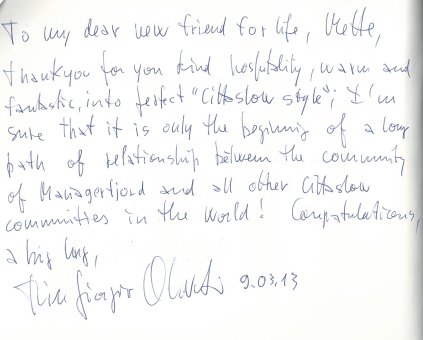 To my dear new friend for life, Mette,
thankyou for you kind hospitality, warm and
fantastic, into perfect "Cittaslow style"; I'm
sure that it is only the beginning of a long
path of relationship between the community
of Managerfjord and all other Cittaslow
communities in the world! Congratulations,
a big hug,
Pier Giorgio Oliveti 9.03.13